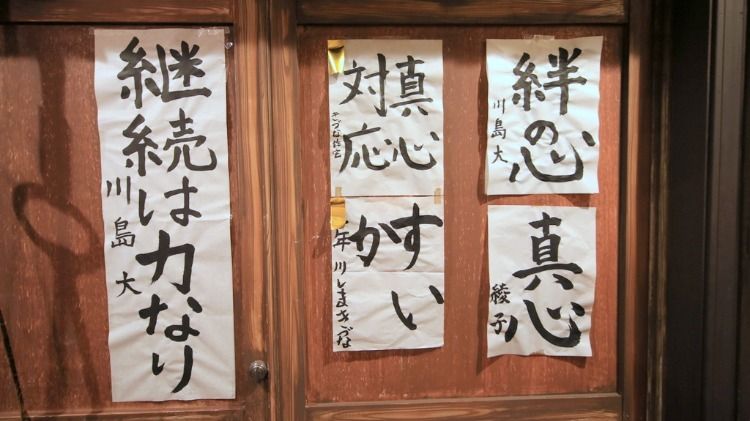 絆の心
川島大
真心
綾子
真心
対応
すい
か
年川しまきづな
継続は力なり
川島大